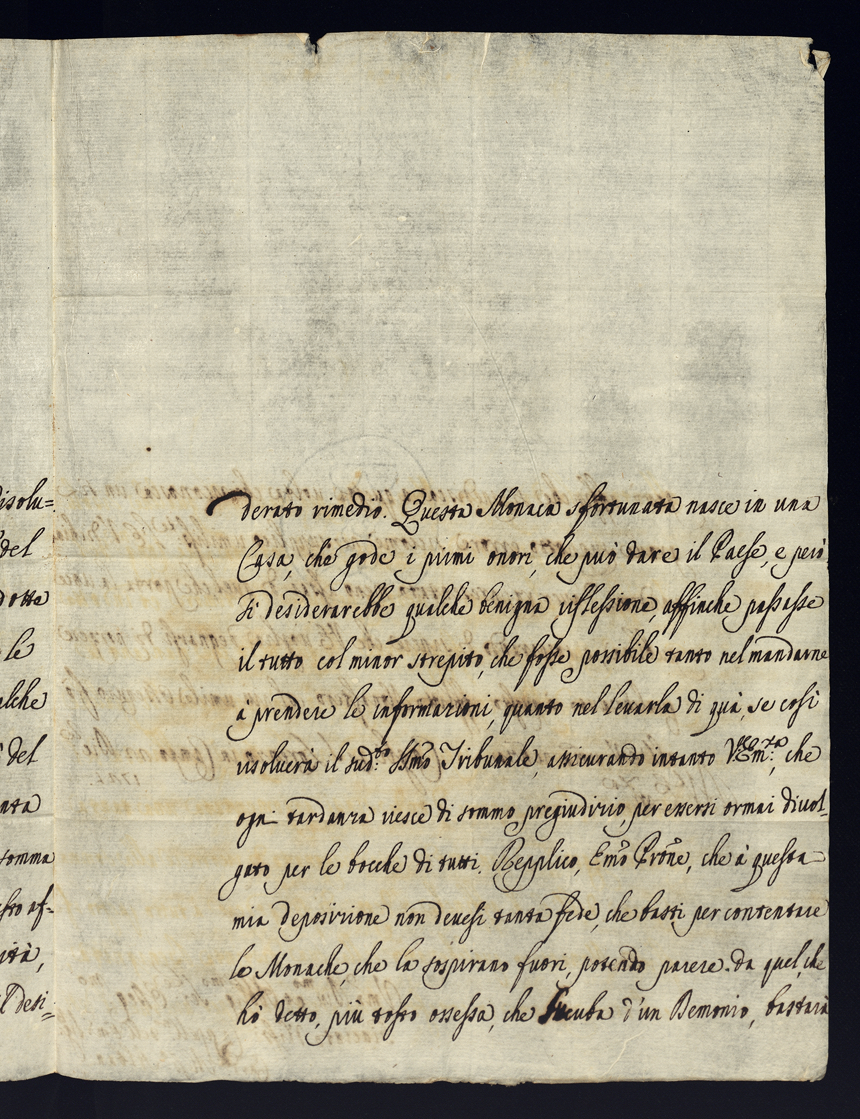 disolu=
del
dotte
le
alche
del
ata
somma
sto af-
ità,
l desi=
derato rimedio. Questa Monaca sfortunata nasce in una
Casa, che gode i primi onori, che può dare il Paese, e però
si desiderarebbe qualche benigna riflessione, affinche passasse
il tutto col minor strepito, che fosse possibile tanto nel mandarne
à prendere le informazioni, quanto nel levarla di quà, se così
risolverà il sud:to Ssmo Tribunale, assicurando intanto V. Em:za, che
ogni tardanza riesce di sommo pregiudizio per essersi ormai divol-
gato per le bocche di tutti. Repplico, Emo Prone, che à questa
mia deposizione non devesi tanta fede, che basti per contentare
le Monache, che la sospirano fuori, potendo parere da quel, che
hò detto, più tosto ossessa, che Sucuba d'un Demonio, bastarà